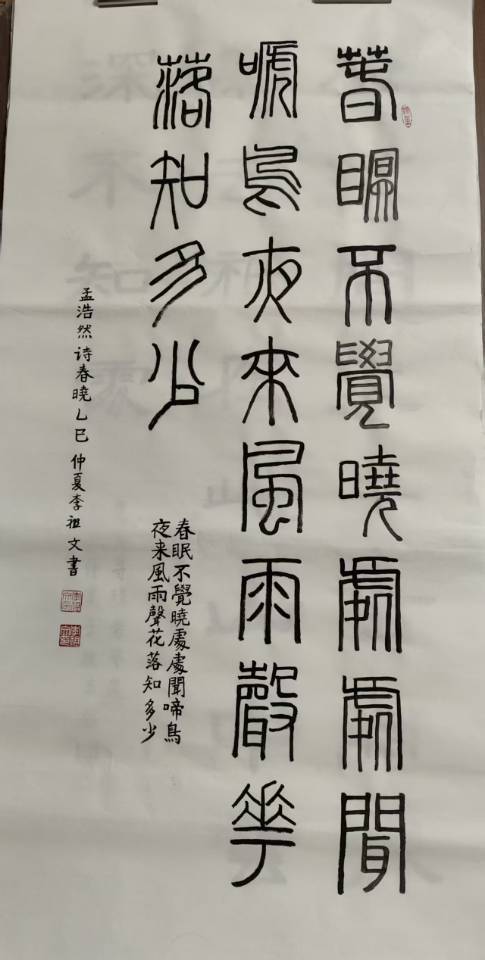 春眠不覺曉處處聞
嗁鳥夜來風雨聲華
落知多少
春眠不覺曉處處聞啼鳥
夜来風雨聲花落知多少
孟浩然诗春曉乙巳仲夏李祖文書